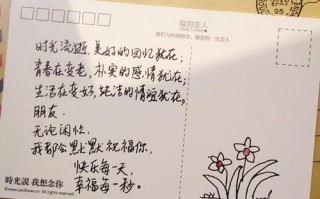 时光流逝,美好的回忆犹在;
青春在变老,朴实的感情犹在;
生活在变好,纯洁的情谊犹在,
朋友.
无论闲忙.
我都会默默祝福你.
快乐每一天,
幸福每一秒。
時光說 我想念你